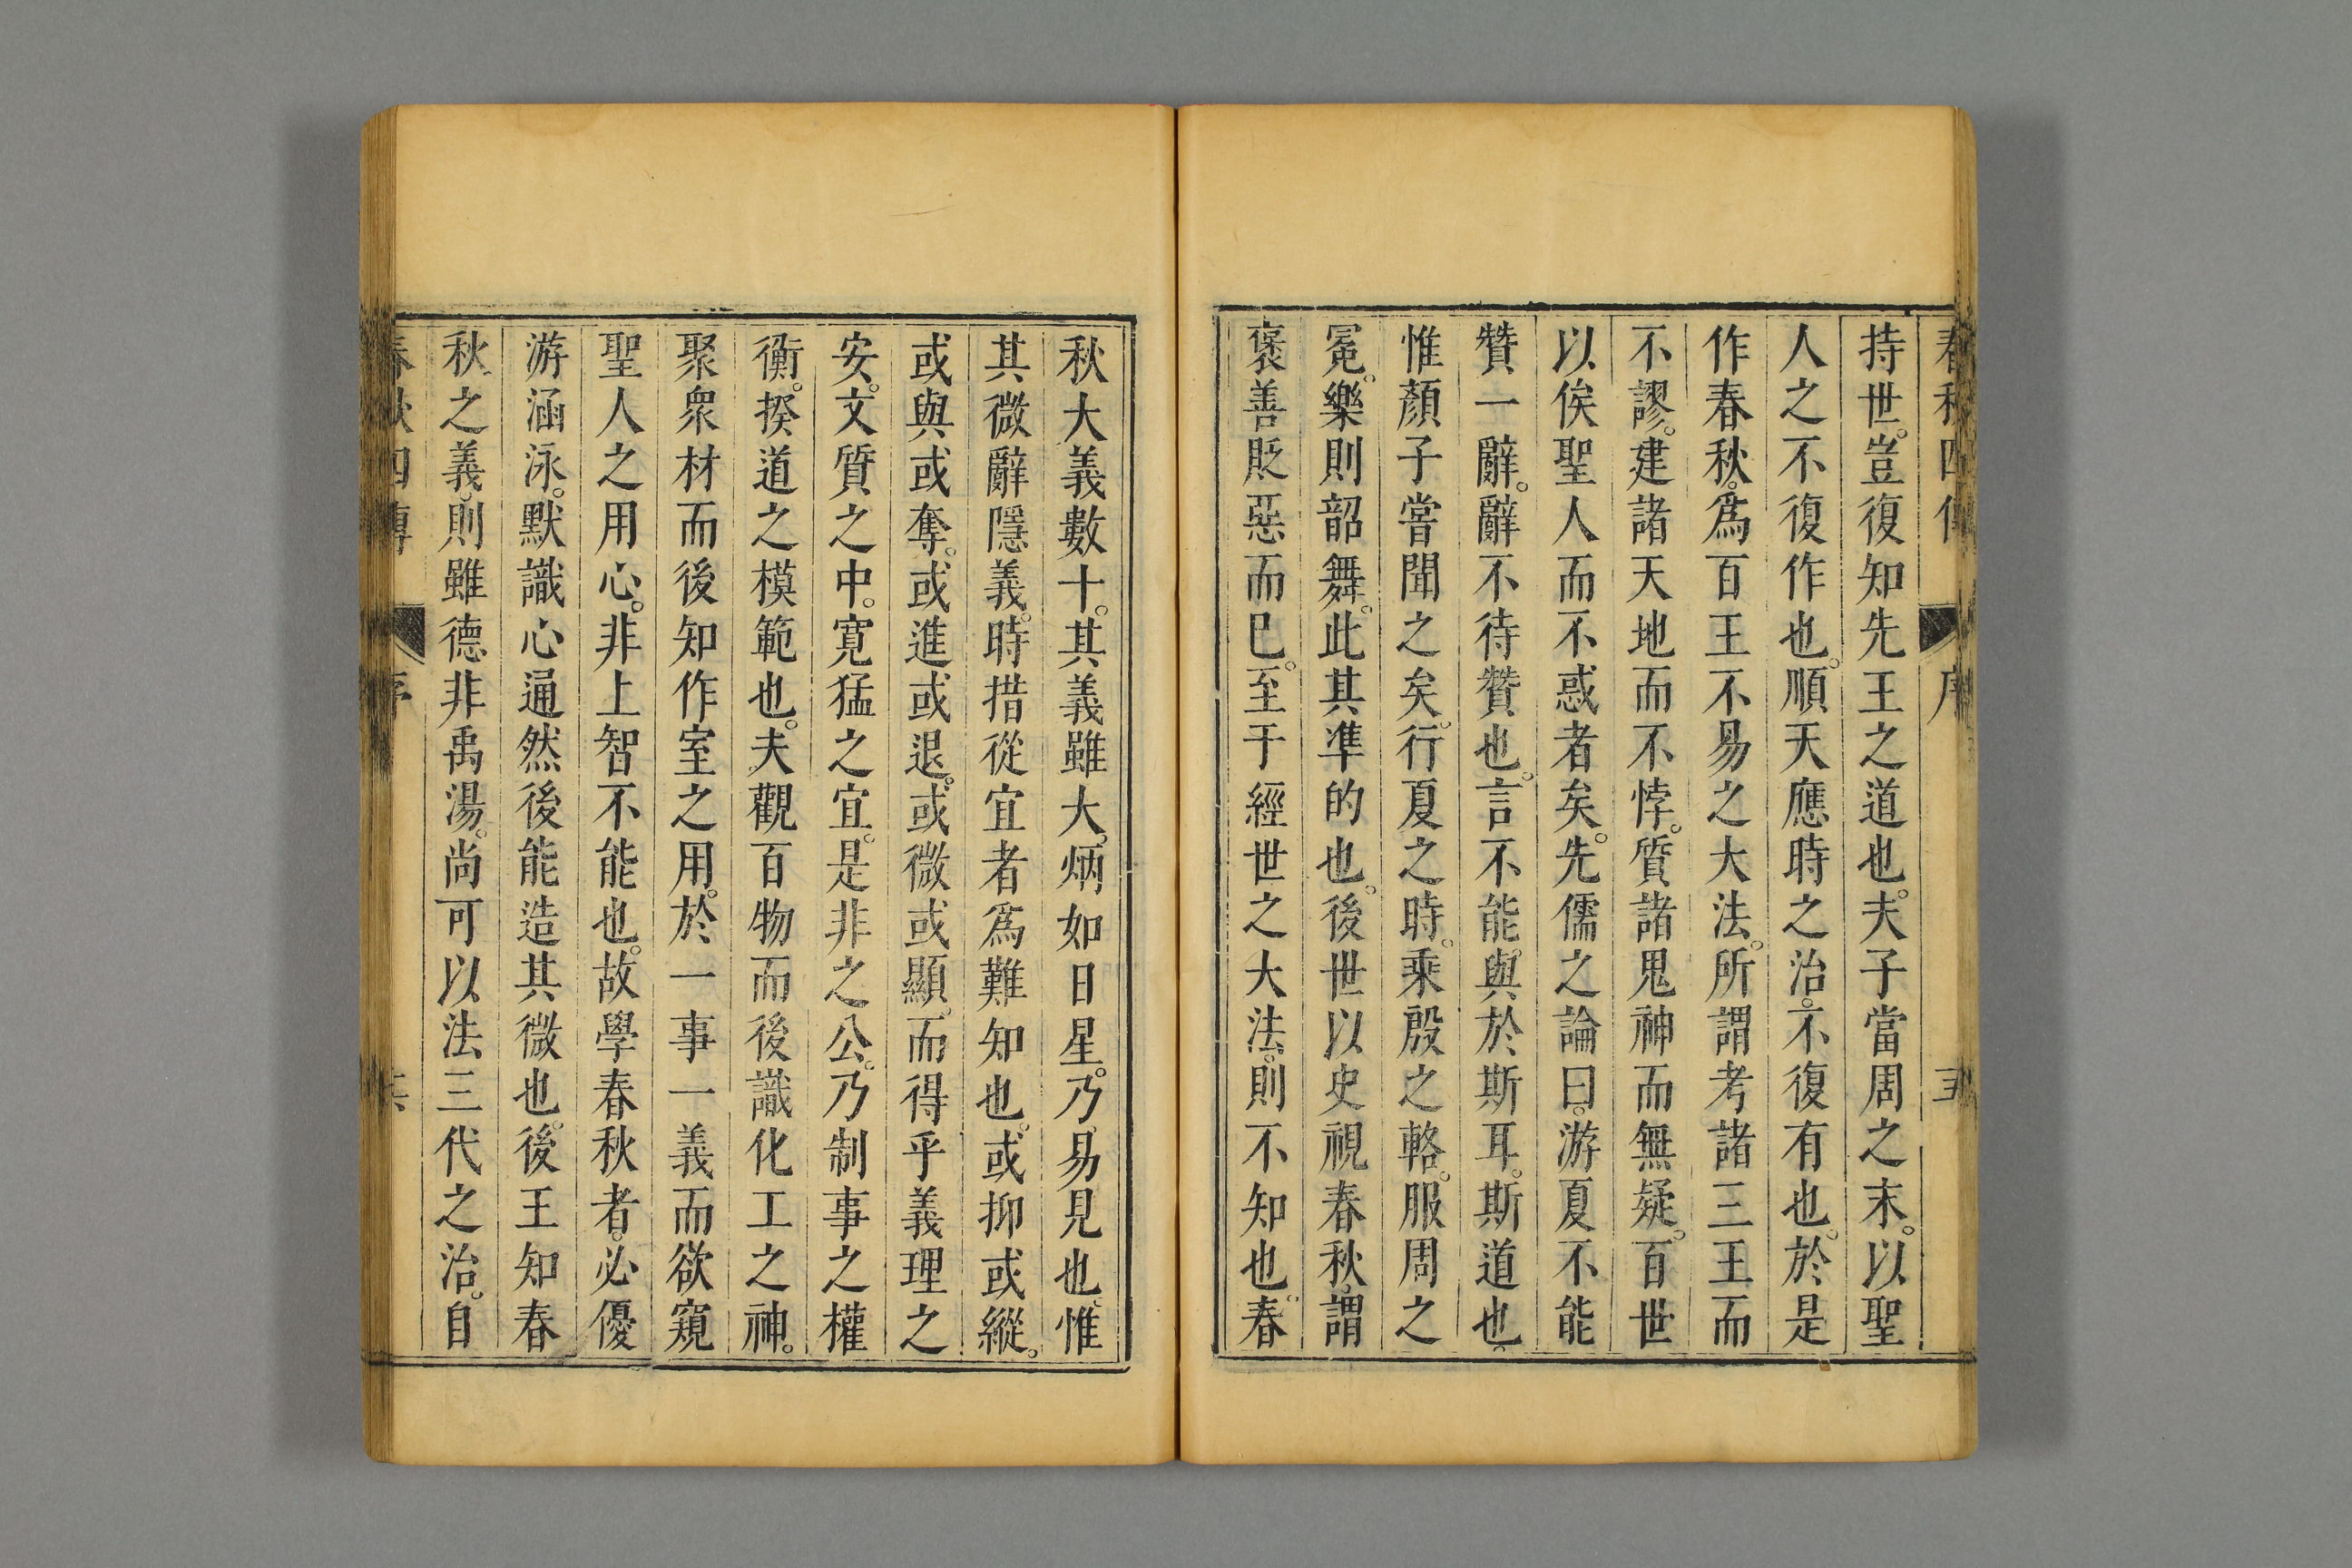 春秋四傳 序 五
持世。豈復知先王之道也。夫子當周之末。以聖
人之不復作也。順天應時之治。不復有也。於是
作春秋。爲百王不易之大法。所謂考諸三王而
不謬。建諸天地而不悖。質諸鬼神而無疑。百世
以俟聖人而不惑者矣。先儒之論曰。游夏不能
贊一辭。辭不待贊也。言不能。與於斯耳。斯道也。
惟顏子嘗聞之矣。行夏之時。乘殷之輅。服周之
冕。樂則韶舞。此其準的也。後世以史視春秋。謂
褒善貶惡而已。至于經世之大法。則不知也。春
秋大義數十。其義雖大。炳如日星。乃易見也。惟
其微辭隱義。時措從宜者爲難知也。或抑或縱。
或與或奪。或進或退。或微或顯。而得乎義理之
安。文質之中。寬猛之宜。是非之公。乃制事之權
衡。揆道之模範也。夫觀百物而後識化工之神。
聚眾材而後知作室之用。於一事一義而欲窺
聖人之用心。非上智不能也。故學春秋者。必優
游涵泳。默識心通然後能造其微也。後王知春
秋之義。則雖德非禹湯。尚可以法三代之治。自
春秋四傳 序 六